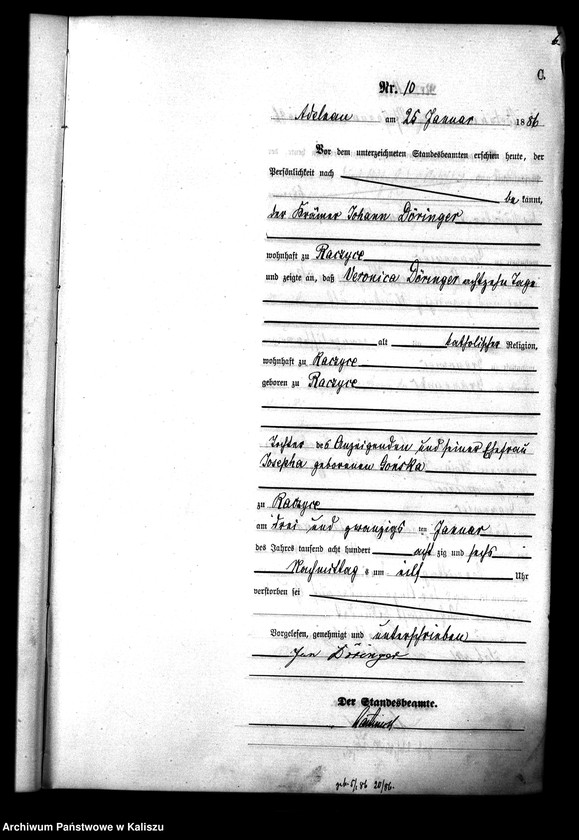 6.
C.
Nr. 10
Adelnau am 25 Januar 1886
Vor dem unterzeichneten Standesbeamten erschien heute, der
Persönlichkeit nach
be kannt,
der Krämer Johann Döringer
wohnhaft zu Raczyce
und zeigte an, daß Veronica Döringer achtzehn Tage
alt katholischer Religion,
wohnhaft zu Raczyce
geboren zu Raczyce
Tochter des Anzeigenden und seiner Ehefrau
Josepha geborenen Gońska
zu Raczyce
am drei und zwanzigs ten Januar
des Jahres tausend acht hundert acht zig und sechs
Nachmittag s um eilf Uhr
verstorben sei
Vorgelesen, genehmigt und unterschrieben
Jan Döringer
Der Standesbeamte.
geb. 5/1. 86 20/86.
Archiwum Państwowe w Kaliszu